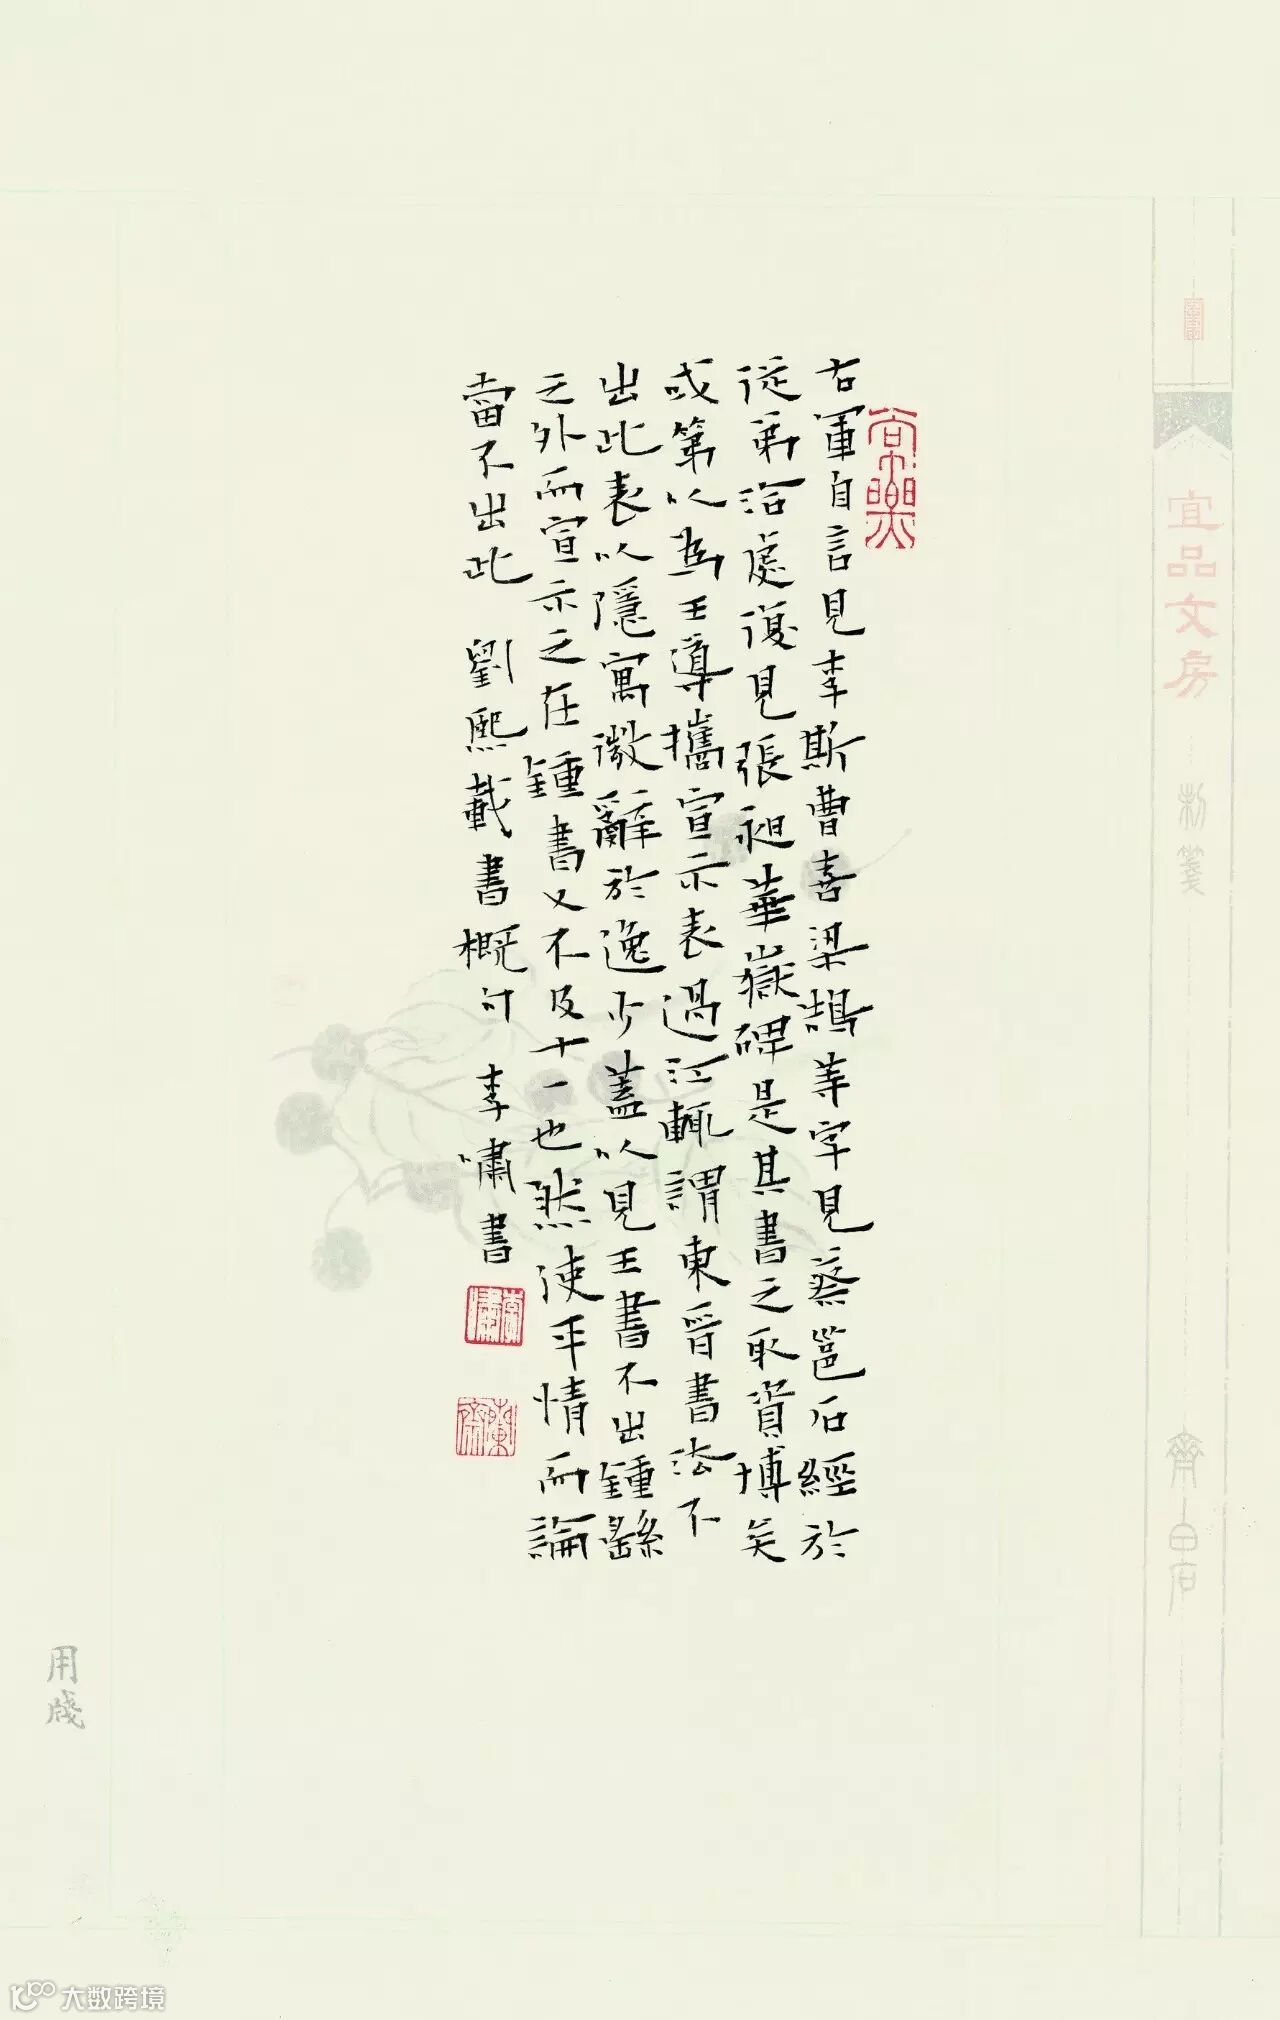 宜品文房
制箋
齊白石
右軍自言見李斯曹喜梁鵠等字見蔡邕石經於
從弟洽處復見張昶華嶽碑是其書之取資博矣
或第以為王導攜宣示表過江輒謂東晉書法不
出此表以隱寓微辭於逸少蓋以見王書不出鍾繇
之外而宣示之在鍾書又不及十一也然使平情而論
當不出此 劉熙載書概 李嘯書
李嘯
用牋
大数跨境